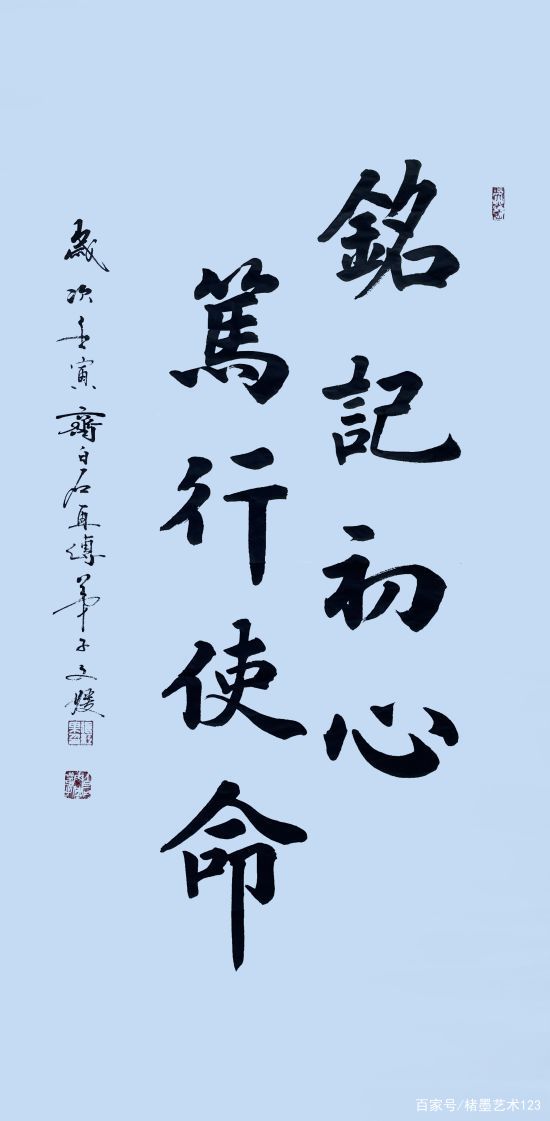 銘記初心
篤行使命
歲次壬寅齊白石再傳弟子文媛
百家号/楮墨艺术123